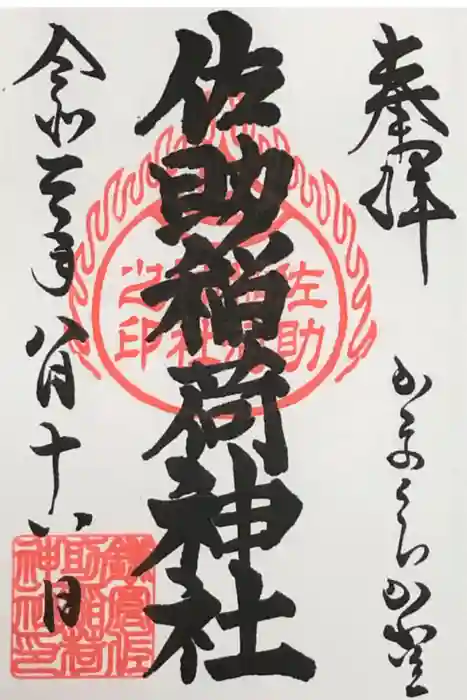 奉拝
かまくら
佐助稲荷神社
令和三年八月十八日
佐助稲荷神社之印
鎌倉佐
助稲荷
神社印